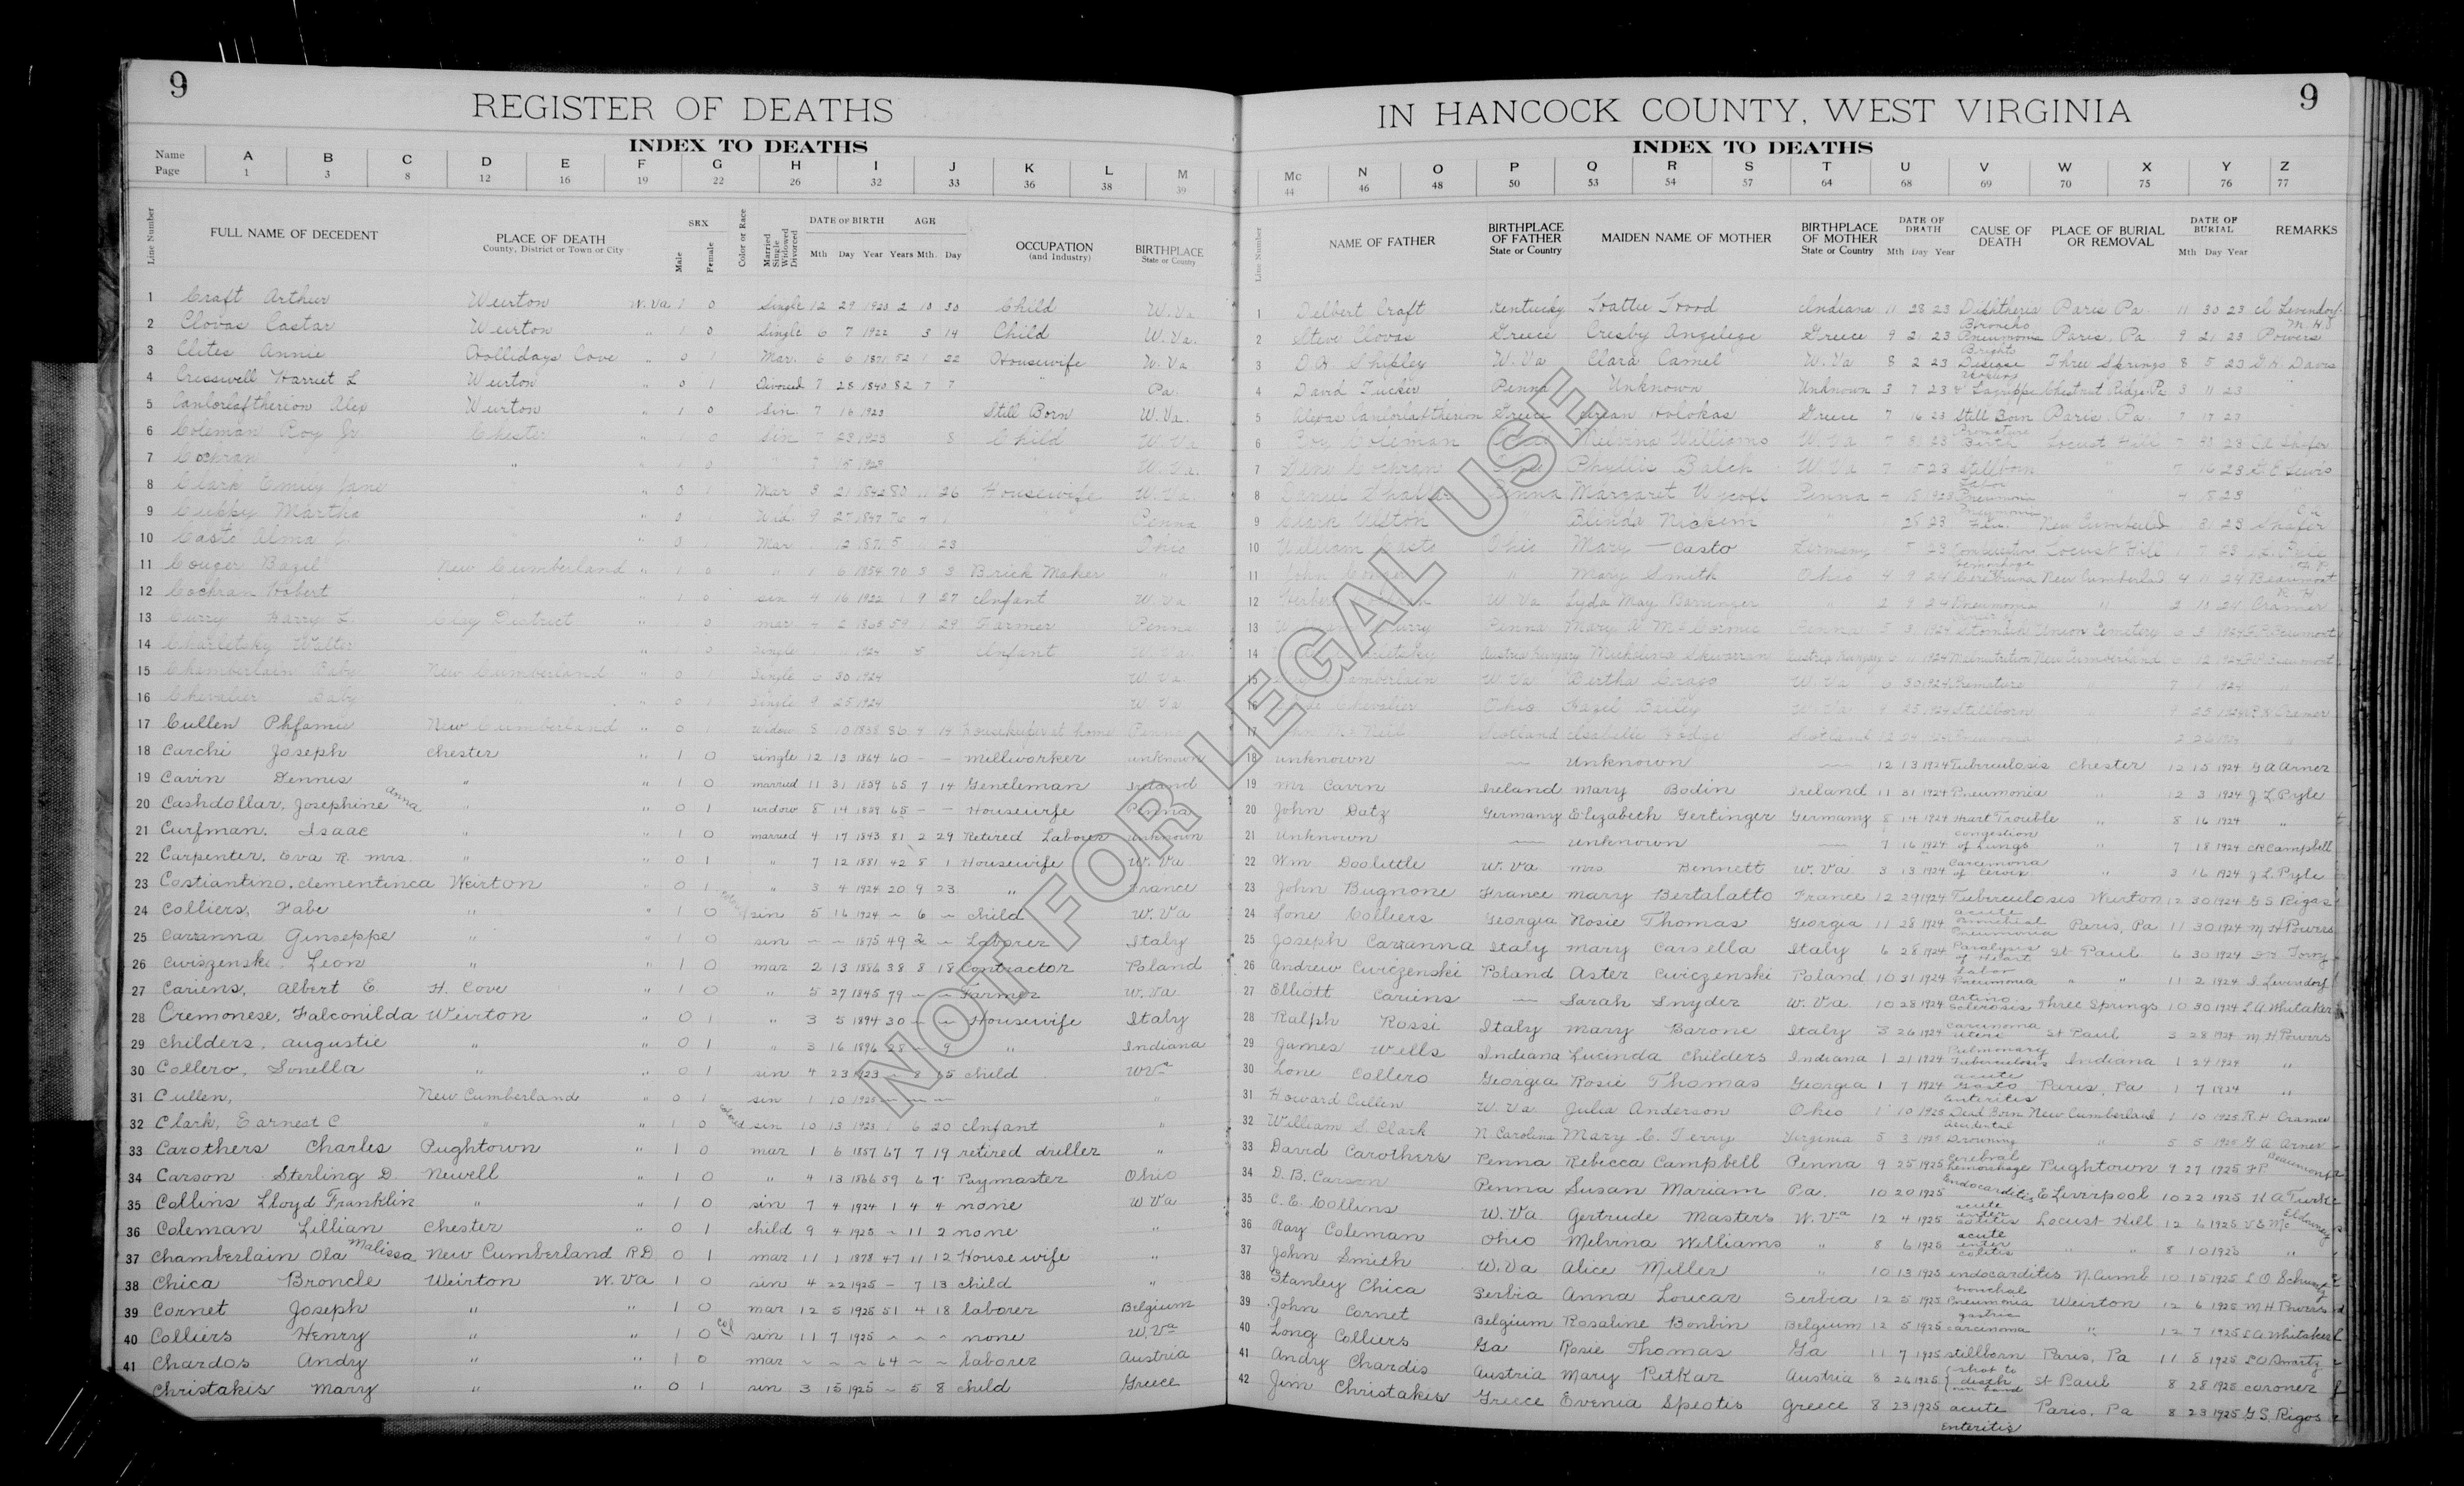 9
REGISTER OF DEATHS
INDEX TO DEATHS
Name A B C D E F G H I J K L M
Page 1 3 8 12 16 19 22 26 32 33 36 38 39
Line Number FULL NAME OF DECEDENT PLACE OF DEATH County, District or Town or City SEX Male Female Color or Race Married Single Widowed Divorced DATE OF BIRTH Mth Day Year AGE Years Mth. Day OCCUPATION (and Industry) BIRTHPLACE State or Country
1 Craft Arthur Weirton W. Va 1 0 Single 12 29 1920 2 10 30 Child W. Va
2 Clovas Castar Weirton " 1 0 Single 6 7 1922 3 14 Child W. Va.
3 Clites Annie Hollidays Cove " 0 1 Mar. 6 6 1871 52 1 22 Housewife W. Va
4 Cresswell Harriet L Weirton " 0 1 Divorced 7 28 1840 82 7 7 " Pa.
5 Weirton " 1 0 Sin. 7 16 1923 Still Born W. Va.
6 Coleman Roy Jr Chester " 1 0 Sin 7 23 1923 8 Child W. Va
7 Cochran " " 1 0 " 7 15 1923 W. Va.
8 Clark Emily Jane " 0 1 Mar 3 21 1842 80 11 26 Housewife W. Va.
9 Martha " 0 Wid. 9 27 1847 76 4 1 Penna
10 Casto Alma J. " 0 Mar 12 1871 23 Ohio
11 Couger Bazil New Cumberland " 1 0 " 1 6 1854 70 3 3 Brick Maker "
12 Cochran Hobert " " 1 0 sin 4 16 1922 1 9 27 Infant W. Va
13 Curry Harry L. Clay District " 0 mar 4 2 1865 59 1 29 Farmer Penna
14 Charletsky Walter " 0 single 1924 5 Infant W. Va.
15 Chamberlain Baby New Cumberland " 0 1 Single 6 30 1924 W. Va.
16 Chevalier Baby " " 0 1 Single 9 25 1924 W Va
17 Cullen Phfamie New Cumberland " 0 1 widow 8 10 1838 86 4 14 housekeeper at home Penna
18 Carchi Joseph Chester " 1 0 single 12 13 1864 60 – – millworker unknown
19 Cavin Dennis " " 1 0 married 11 31 1859 65 7 14 Gentleman Ireland
20 Cashdollar, Josephine Anna " " 0 1 widow 8 14 1859 65 – – Housewife Penna
21 Curfman, Isaac " " 1 0 married 4 17 1843 81 2 29 Retired Laborer unknown
22 Carpenter, Eva R. mrs. " " 0 1 " 7 12 1881 42 8 1 Housewife W. Va
23 Costiantino, Clementinca Weirton " 0 1 " 3 4 1924 20 9 23 " France
24 Colliers, Fabe " " 1 0 colored sin 5 16 1924 ~ 6 ~ child W. Va
25 Carranna Ginseppe " " 1 0 sin ~ ~ 1875 49 2 ~ Laborer Italy
26 Cwiszenski, Leon " " 1 0 mar 2 13 1886 38 8 18 Contractor Poland
27 Cariens, Albert E. H. Cove " 1 0 " 5 27 1845 79 ~ ~ Farmer W. Va
28 Cremonese, Falconilda Weirton " 0 1 " 3 5 1894 30 ~ ~ Housewife Italy
29 Childers, Augustie " " 0 1 " 3 16 1896 28 – 9 " Indiana
30 Collero, Sonella " " 0 1 sin 4 23 1923 ~ 8 15 child W Va
31 Cullen, New Cumberland " 0 1 sin 1 10 1925 — — — "
32 Clark, Earnest C " " 1 0 colored sin 10 13 1923 1 6 20 Infant "
33 Carothers Charles Pughtown " 1 0 mar 1 6 1857 67 7 19 retired driller "
34 Carson Sterling D. Newell " 1 0 " 4 13 1866 59 6 7 Paymaster Ohio
35 Collins Lloyd Franklin " " 1 0 sin 7 4 1924 1 4 4 none W Va
36 Coleman Lillian Chester " 0 1 child 9 4 1925 ~ 11 2 none "
37 Chamberlain Ola Malissa New Cumberland R.D. 0 1 mar 11 1 1878 47 11 12 House wife "
38 Chica Broncle Weirton W. Va 1 0 sin 4 22 1925 – 7 13 child "
39 Cornet Joseph " " 1 0 mar 12 5 1925 51 4 18 laborer Belgium
40 Colliers Henry " " 1 0 Col sin 11 7 1925 ~ ~ ~ none W. Va
41 Chardos Andy " " 1 0 mar ~ ~ ~ 64 ~ ~ laborer Austria
Christakis Mary " " 0 1 sin 3 15 1925 ~ 5 8 child Greece
9
IN HANCOCK COUNTY, WEST VIRGINIA
INDEX TO DEATHS
Mc N O P Q R S T U V W X Y Z
44 46 48 50 53 54 57 64 68 69 70 75 76 77
Line Number NAME OF FATHER BIRTHPLACE OF FATHER State or Country MAIDEN NAME OF MOTHER BIRTHPLACE OF MOTHER State or Country DATE OF DEATH Mth Day Year CAUSE OF DEATH PLACE OF BURIAL OR REMOVAL DATE OF BURIAL Mth Day Year REMARKS
1 Delbert Craft Kentucky Indiana 11 28 23 Diphtheria Paris Pa. 11 30 23
2 Steve Clovas Greece Cresby Angelege Greece 9 21 23 Broncho Pneumona Paris, Pa 9 21 23 M. H. Powers
3 D. R. Shipley W. Va Clara Camel W. Va 8 2 23 Brights Disease Three Springs 8 5 23 Davis
4 David Tucker Penna Unknown Unknown 3 7 23 Lagrippe Chestnut Ridge Pa 3 11 23
5 Greece Greece 7 16 23 Still Born Paris. Pa. 7 17 23
6 Roy Coleman Ohio Melvina Williams W. Va 7 31 23 Premature Birth Locust Hill 7 31 23 Shafer
7 Cochran Ohio Phyllis Balch W. Va 7 15 23 Stillborn " 7 16 23 Lewis
8 Daniel Penna Margaret Wycoff Penna 4 1923 Pneumonia 4 18 23
9 Clark Blinda 28 23 Pneumonia Flu. New Cumberland 31 23 Shafer
10 William Casto Ohio Mary — Casto Germany 5 23 Locust Hill 7 23 Pyle
11 John Couger " Mary Smith Ohio 4 9 24 New Cumberland 4 11 24 Beaumont
12 Herbert Cochran W. Va Lyda May Barringer " 2 9 24 Pneumonia " 2 10 24 R H Cramer
13 Curry Penna Mary Penna 5 3 1924 Stomach Union Cemetery 6 3 1924 Beaumont
14 Austria Hungary Austria Hungary 6 11 1924 Malnutrition New Cumberland 6 12 1924 Beaumont
15 Chamberlain W. Va Bertha Crago W. Va 6 30 1924 Premature " 7 1 1924 "
16 Chevalier Ohio Hazel Bailey W. Va 9 25 1924 Stillborn 9 25 1924 Cramer
17 Mc Neil Scotland Isabelle Dodge Scotland 12 24 1924 Pneumonia " 2 26 1924 "
18 unknown — Unknown — 12 13 1924 Tuberculosis Chester 12 15 1924 G A Arner
19 Mr Cavin Ireland Mary Bodin Ireland 11 31 1924 Pneumonia " 12 3 1924 J L Pyle
20 John Datz Germany Elizabeth Gertinger Germany 8 14 1924 Heart Trouble " 8 16 1924 "
21 Unknown — Unknown — 7 16 1924 Congestion of Lungs " 7 18 1924 C R Campbell
22 Wm Doolittle W. Va mrs. Bennett W. Va 3 13 1924 Carcemona of Cervix " 3 16 1924 J. L. Pyle
23 John Bugnone France Mary Bertalatto France 12 29 1924 Tuberculosis Weirton 12 30 1924 G S Rigas
24 Lone Colliers Georgia Rosie Thomas Georgia 11 28 1924 acute Bronchial Pneumonia Paris, Pa 11 30 1924 M H Powers
25 Joseph Carranna Italy Mary Carsella Italy 6 28 1924 Paralysis of Heart St Paul 6 30 1924
26 Andrew Cwiczenski Poland Aster Cwiczenski Poland 10 31 1924 Labor Pneumonia " " 11 2 1924
27 Elliott Cariens — Sarah Snyder W. Va 10 28 1924 Artino Sclerosis Three Springs 10 30 1924 L A Whitaker
28 Ralph Rossi Italy Mary Barone Italy 3 26 1924 Carcinoma Uteri St Paul 3 28 1924 M. H. Powers
29 James Wells Indiana Lucinda Childers Indiana 1 21 1924 Pulmonary Tuberculosis Indiana 1 24 1924 "
30 Lone Collero Georgia Rosie Thomas Georgia 1 7 1924 acute Gastro Enteritis Paris, Pa 1 7 1924 "
31 Howard Cullen W. Va Julia Anderson Ohio 1 10 1925 Dead Born New Cumberland 1 10 1925 R. H Cramer
32 William S Clark N Carolina Mary C. Terry Virginia 5 3 1925 accidental Drowning " 5 5 1925 G A Arner
33 David Carothers Penna Rebecca Campbell Penna 9 25 1925 Cerebral hemorrhage Pughtown 9 27 1925 F.P. Beaumont
34 D. B. Carson Penna Susan Mariam Pa. 10 20 1925 Endocarditis E Liverpool 10 22 1925
35 C. E. Collins W. Va Gertrude Masters W. Va 12 4 1925 acute enter colitis Locust Hill 12 6 1925
36 Ray Coleman Ohio Melvina Williams " 8 6 1925 acute enter colitis " " 8 10 1925 "
37 John Smith W. Va Alice Miller " 10 13 1925 endocarditis N. Cumb 10 15 1925
38 Stanley Chica Serbia Anna Loucar Serbia 12 5 1925 bronchial Pneumonia Weirton 12 6 1925 M H Powers
39 John Cornet Belgium Rosaline Bonbin Belgium 12 5 1925 gastric carcinoma " 12 7 1925 L A Whitaker
40 Long Colliers Ga Rosie Thomas Ga 11 7 1925 stillborn Paris, Pa 11 8 1925
41 Andy Chardis Austria Mary Petkar Austria 8 26 1925 shot to death own hand St Paul 8 28 1925 coroner
42 Jim Christakis Greece Evenia Speotis Greece 8 23 1925 acute Enteritis Paris, Pa 8 23 1925 G S. Rigos
NOT FOR LEGAL USE